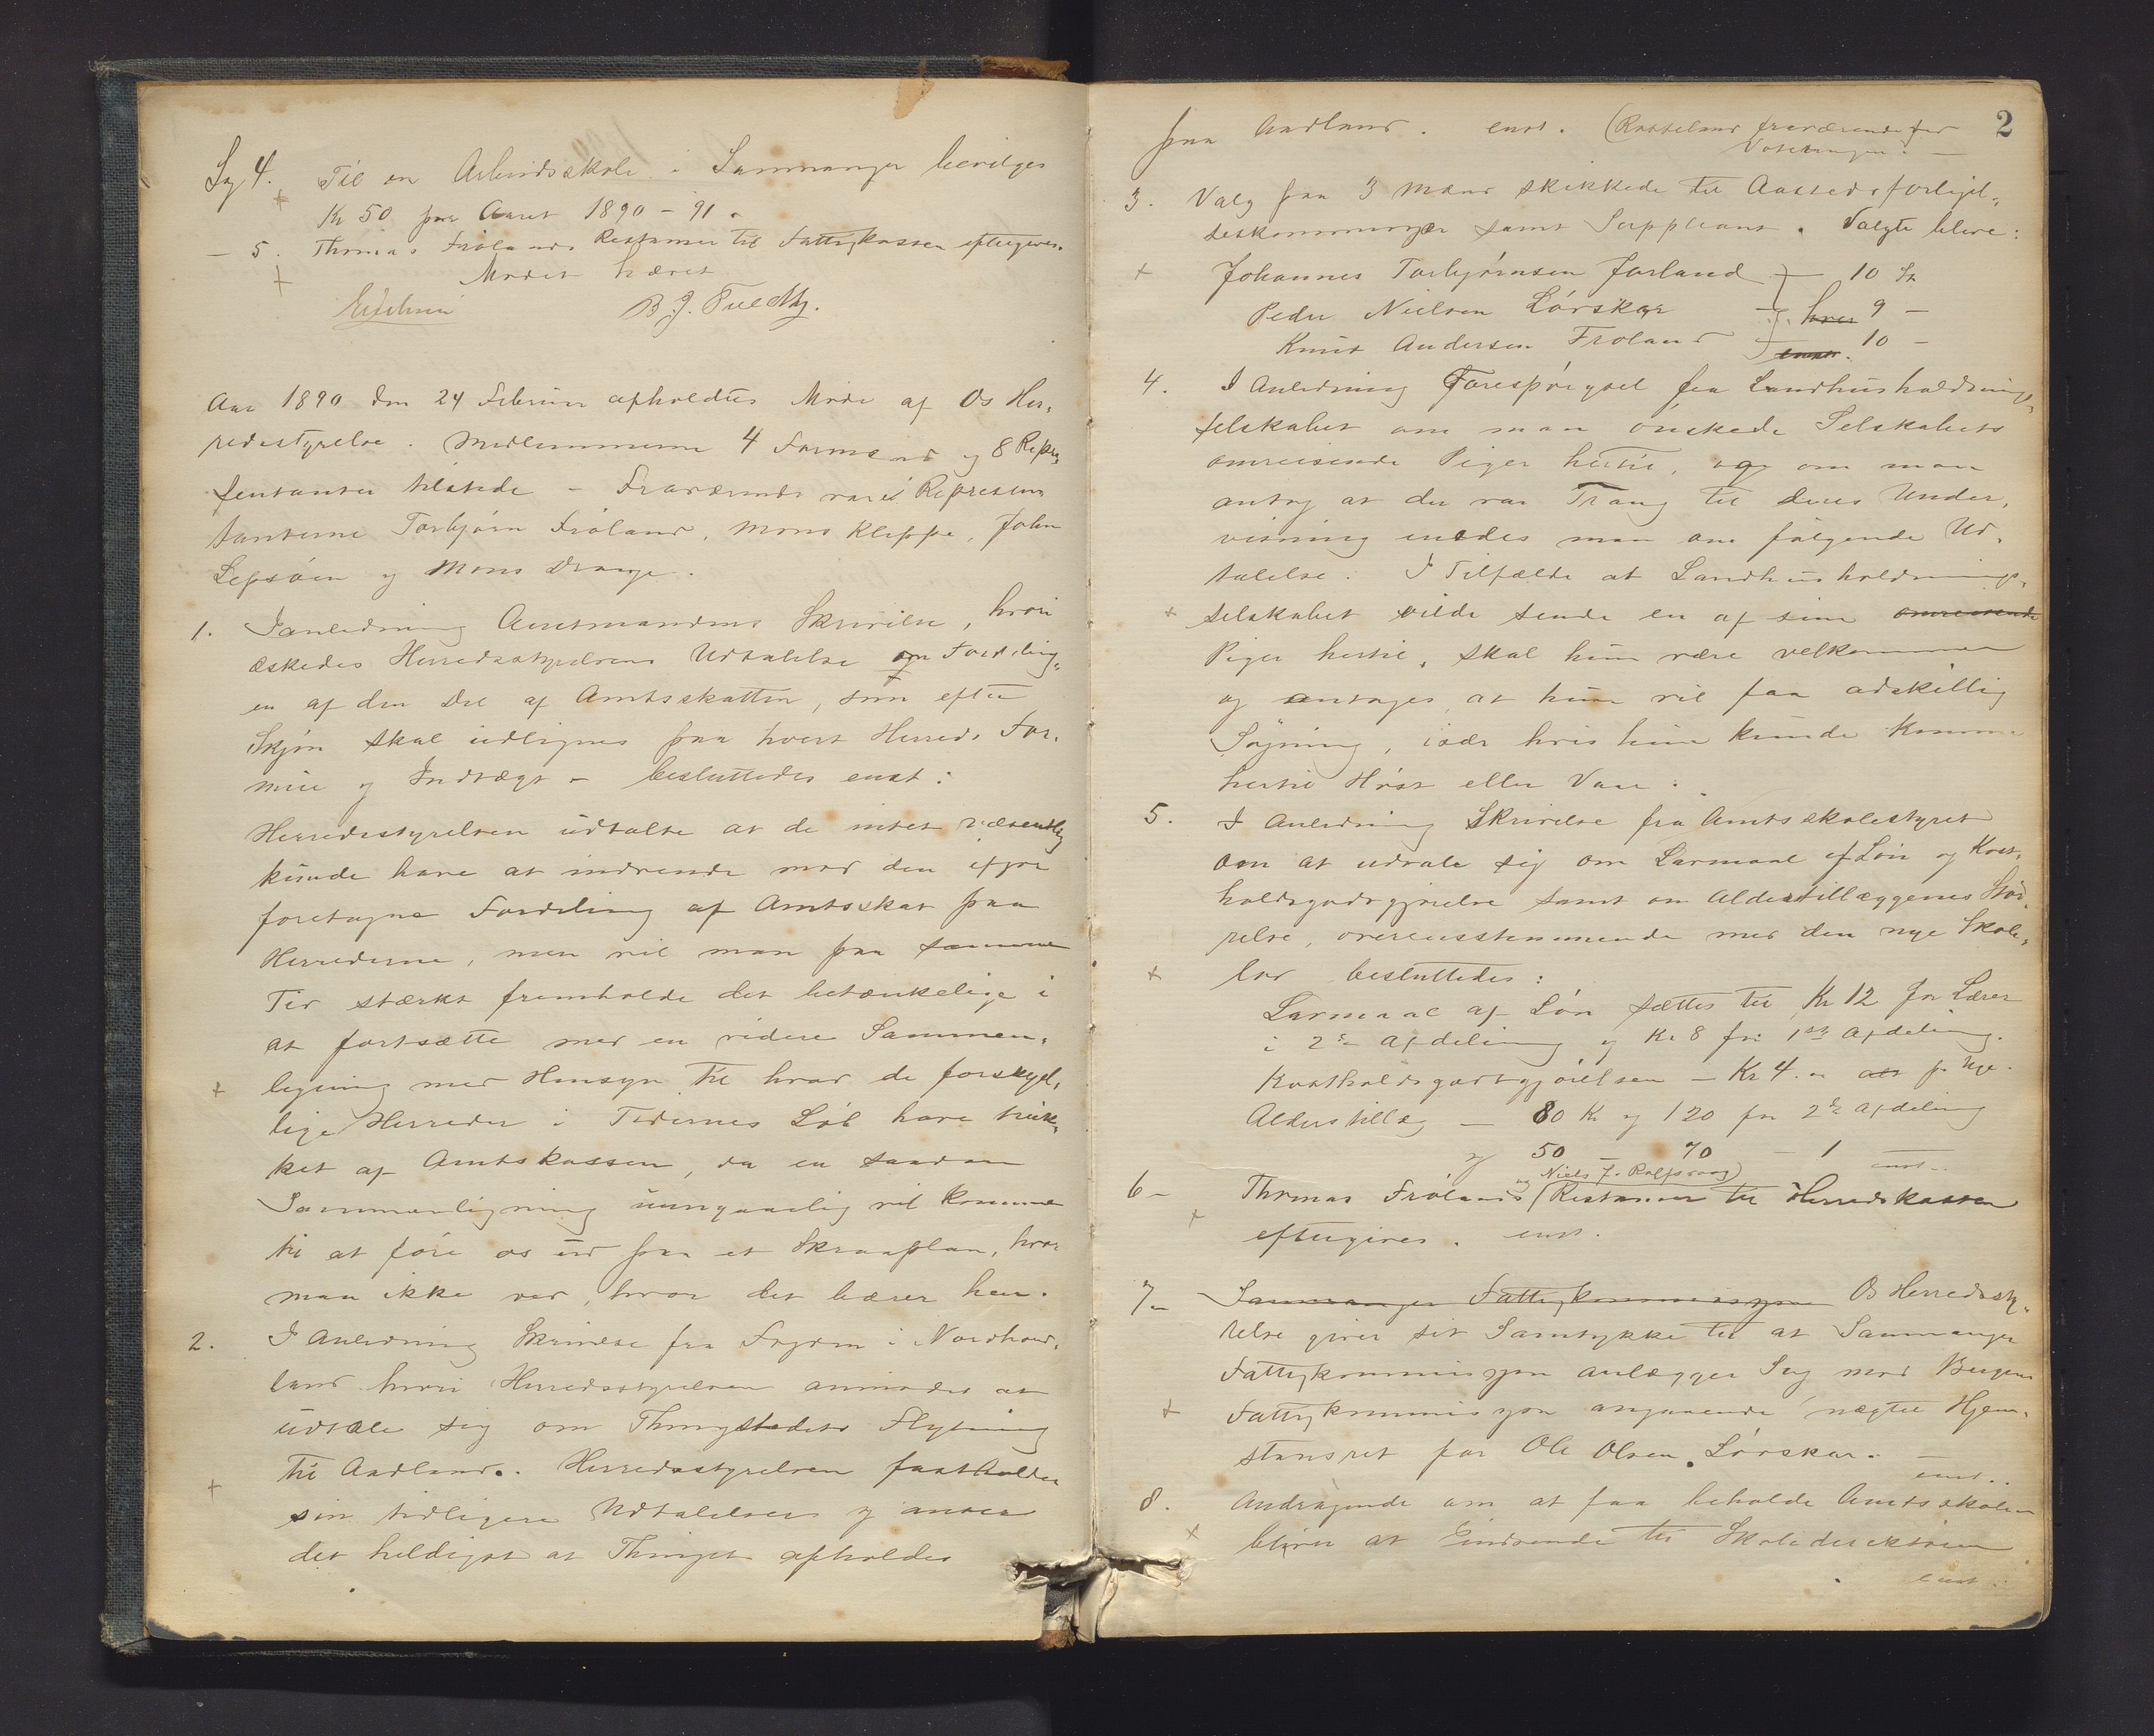 Sag 4. Til en Arbeidsskole i Sammanger bevilges
Kr 50 for Aaret 1890-91.
- 5. Thomas Frölands Restanser til Fattigkassen eftergives.
Mødet hævet
B. J. Tvedt
Aar 1890 den 24 Februar afholdtes Møde af Os Her-
redsstyrelse. Medlemmerne 4 Formænd og 8 Repræ-
sentanter tilstede - Fraværende vare Represen
tanterne Torbjørn Fröland, Mons Kleppe, John
Lepsöen og Mons Drange.
1. I anledning Amtmandens Skrivelse, hvori
æskedes Herredsstyrelsens Udtalelse om Fordeling-
en af den Del af Amtsskatten, som efter
Skjøn skal udlignes paa hvert Herreds For-
mue og Indtægt - besluttedes enst:
Herredsstyrelsen udtalte at de intet væsentlig
kunde have at indvende mod den ifjor
foretagne Fordeling af Amtsskat paa
Herrederne, men vil man paa samme
Tid stærkt fremholde det betænkelige i
at fortsætte med en videre Sammen-
ligning med Hensyn til hvad de forskjel-
lige Herreder i Tidernes Löb have truk-
ket af Amtskassen, da en saadan
Sammenligning uungaaelig vil komme
til at före os ud paa et Skraaplan, hvor
man ikke ved, hvor det bærer hen.
2. I Anledning Skrivelse fra Fogden i Nordhord-
land hvori Herredsstyrelsen anmodes at
udtale sig om Thingstedets Flytning
til Aadland. Herredsstyrelsen fastholder
sin tidligere Udtalelse og anser
det heldigst at Thinget afholdes
2
paa Aadland. enst. (Røtteland fraværende før
Voteringen. -
3. Valg paa 3 Mænd skikkede til Aastedsforligel-
seskommissær samt Suppleant. Valgte bleve:
Johannes Torbjörnsen Jørland - 10 St
Peder Nielsen Lörskar hver 9 -
Knut Andersen Fröland enst. 10 -
4. I Anledning Forespörgsel fra Landhusholdnings-
selskabet om man önskede Selskabets
omreisende Piger hertil, og om man
antog at der var Trang til deres Under-
visning enedes man om fölgende Ud-
talelse. I Tilfælde at Landhusholdnings-
selskabet vilde sende en af sine omreisende
Piger hertil, skal hun være velkommen
og antages, at hun vil faa adskillig
Sögning, især hvis hun kunde komme
hertil Höst eller Vaar.
5. I Anledning Skrivelse fra Amtsskolestyret
om at udtale sig om Lavmaal af Lön og Kost-
holdsgodtgjørelse samt om Alderstillæggenes Stör-
relse, overensstemmende med den nye Skole-
lov besluttedes:
Lavmaal af Lön sættes til Kr 12 for Lærer
i 2den Afdeling og Kr 8 for 1ste Afdeling.
Kostholdsgodtgjörelsen - Kr 4. pr Uge.
Alderstillæg - 80 Kr og 120 for 2den Afdeling
og 50 - 70 - 1 - enst.
6 - Thomas Frölands og Niels J. Rolfsvaag) (Restanser til Herredskassen
eftergives. enst.
7 - Sammanger Fattigkommissjon Os Herredssty-
relse giver sit Samtykke til at Sammanger
Fattigkommissjon anlægger Sag mod Bergens
Fattigkommissjon angaaende nægtet Hjem-
stavnsret for Ole Olsen Lörskar. -
enst.
8. Andragende om at faa beholde Amtsskolen
bliver at indsende til Skoledirektören
enst.